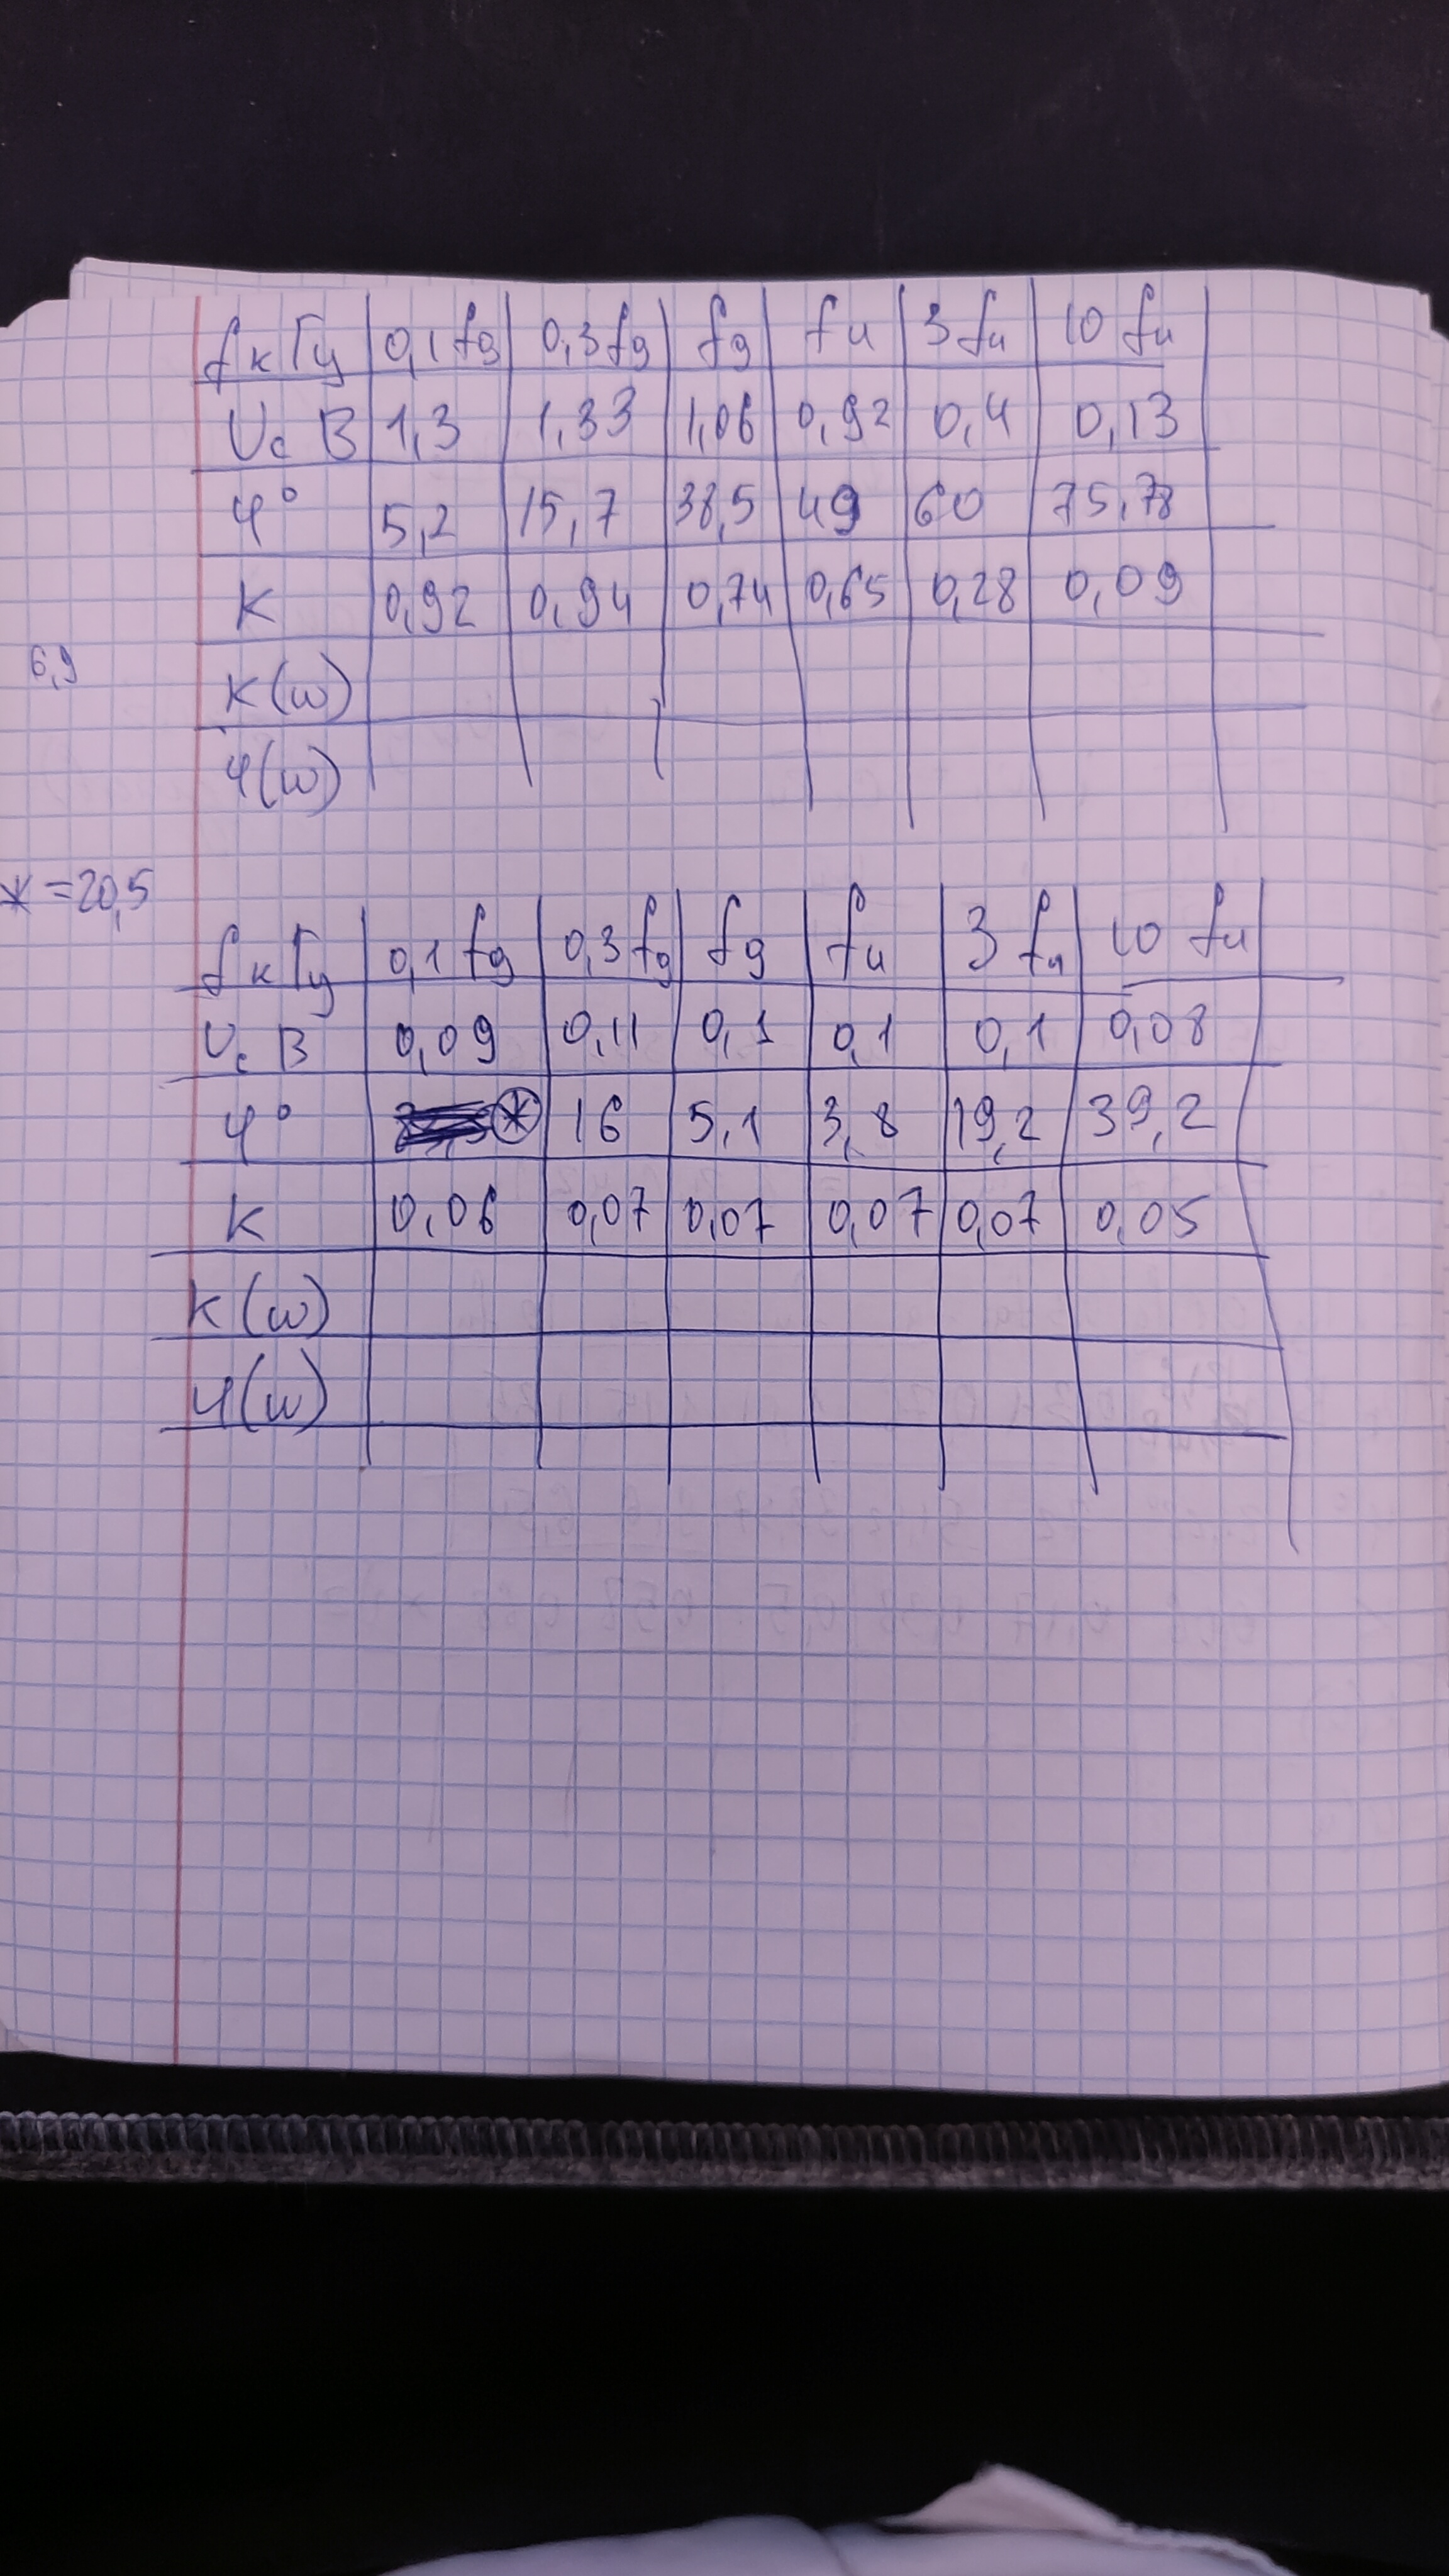 f кГц 0,1 fg 0,3 fg fg fu 3 fu 10 fu
Uc B 1,3 1,33 1,06 0,92 0,4 0,13
φ° 5,2 15,7 38,5 49 60 75,78
K 0,92 0,94 0,74 0,65 0,28 0,09
6,9
K(ω)
φ(ω)
* = 20,5
f кГц 0,1 fg 0,3 fg fg fu 3 fu 10 fu
Uc B 0,09 0,11 0,1 0,1 0,1 0,08
φ° * 16 5,1 3,8 19,2 39,2
K 0,06 0,07 0,07 0,07 0,07 0,05
K(ω)
φ(ω)